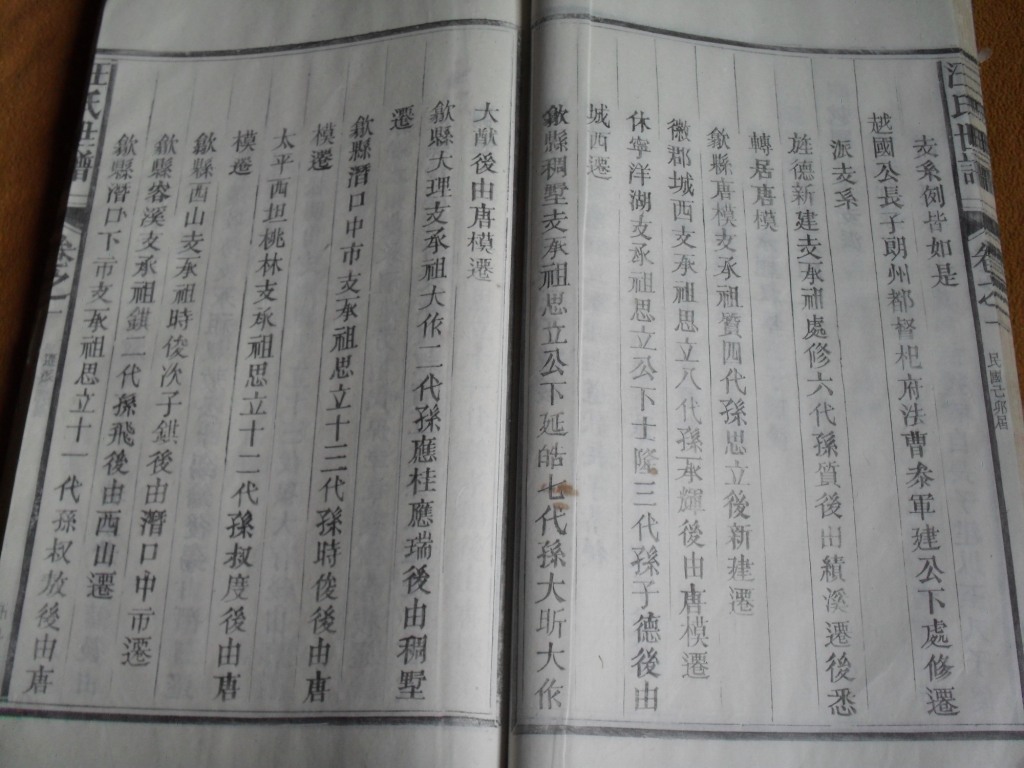 汪氏世譜
卷之一
民國己卯屆
支系例皆如是
越國公長子朗州都督杞府法曹叅軍建公下處修遷
派支系
旌德新建支承祖處修六代孫質後由績溪遷後悉
轉居唐模
歙縣唐模支承祖質四代孫思立後新建遷
徽郡城西支承祖思立八代孫承輝後由唐模遷
休寧洋湖支承祖思立公下士隆三代孫子德後由
城西遷
歙縣稠墅支承祖思立公下延皓七代孫大昕大作
大猷後由唐模遷
歙縣大理支承祖大作二代孫應桂應瑞後由稠墅
遷
歙縣潛口中市支承祖思立十三代孫時俊後由唐
模遷
太平西坦桃林支承祖思立十二代孫叔度後由唐
模遷
歙縣西山支承祖時俊次子錤後由潛口中市遷
歙縣容溪支承祖錤二代孫飛後由西山遷
歙縣潛口下市支承祖思立十一代孫叔放後由唐
汪氏世譜
卷之一